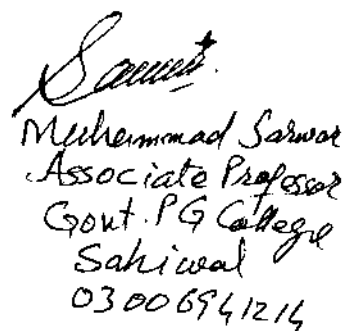 Muhammad Sarwar
Associate Professor
Govt. PG College
Sahiwal
03006941214